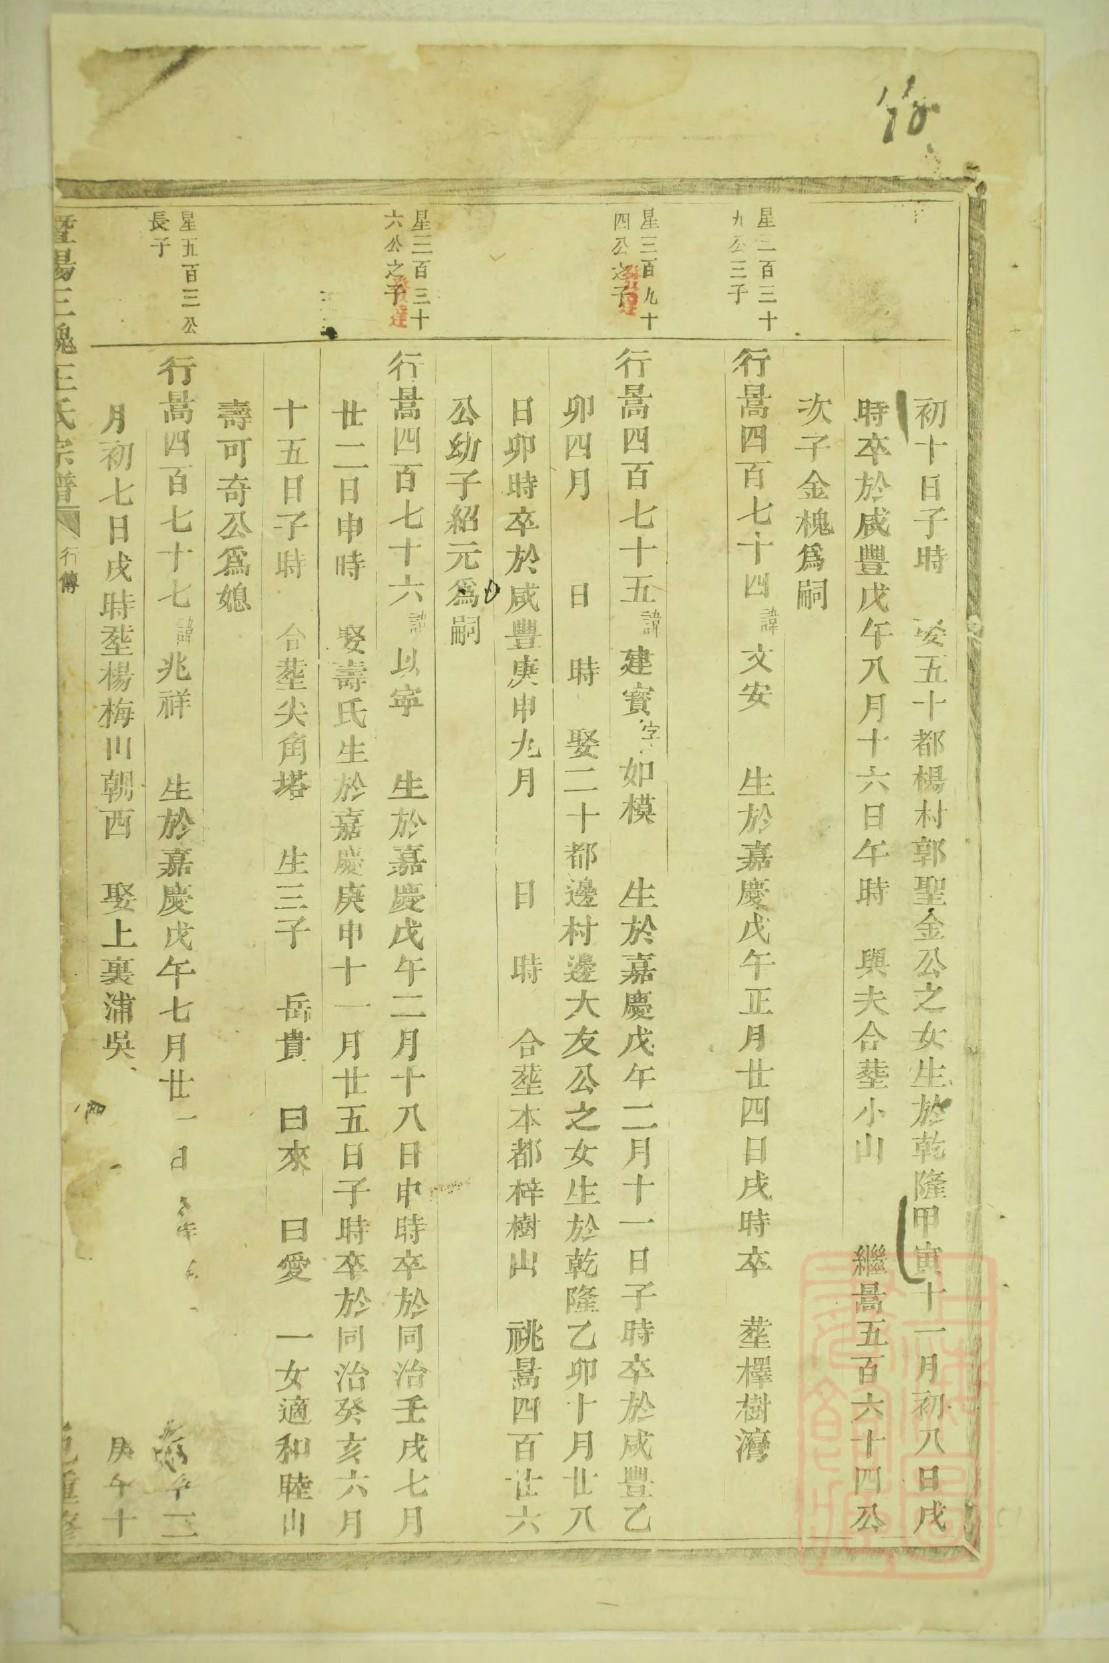 初十日子時 娶五十都楊村郭聖金公之女生於乾隆甲寅十一月初八日戌
時卒於咸豐戊午八月十六日午時 與夫合塟小山 繼暠五百六十四公
次子金槐爲嗣
星二百三十
九公三子
行暠四百七十四諱文安 生於嘉慶戊午正月廿四日戌時卒 塟檡樹灣
星三百九十
四公之子
行暠四百七十五諱建寳字如模 生於嘉慶戊午二月十一日子時卒於咸豐乙
卯四月 日 時 娶二十都邊村邊大友公之女生於乾隆乙卯十月廿八
日卯時卒於咸豐庚申九月 日 時 合塟本都梓樹山 祧暠四百廿六
公幼子紹元爲嗣
星三百三十
六公之子
行暠四百七十六諱以寧 生於嘉慶戊午二月十八日申時卒於同治壬戌七月
廿二日申時 娶壽氏生於嘉慶庚申十一月廿五日子時卒於同治癸亥六月
十五日子時 合塟尖角塔 生三子 岳貴 曰來 曰愛 一女適和睦山
壽可奇公爲媳
星五百三公
長子
行暠四百七十七諱兆祥 生於嘉慶戊午七月廿一日
月初七日戌時塟楊梅山朝西 娶上裏浦吳 庚午十
暨陽三槐王氏宗譜 行傳 重修